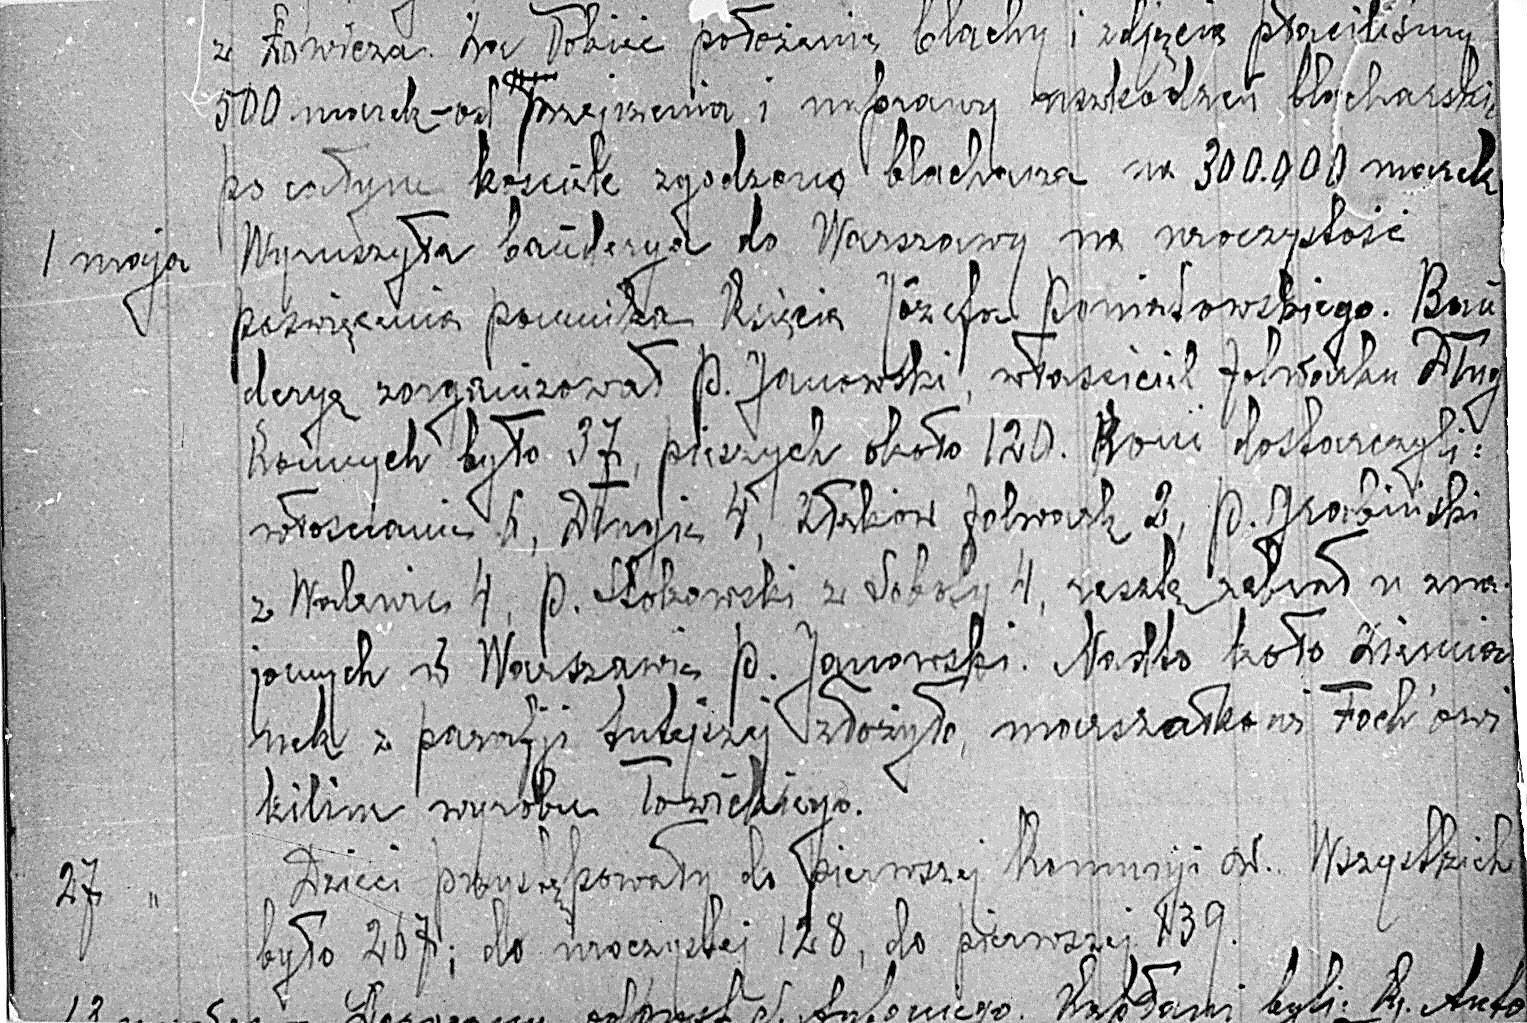 z Łowicza. Za łokieć położenia blachy i zdjęcia płaciliśmy
500 marek – od przejrzenia i naprawy uszkodzeń blacharskich
po całym kościele zgodzono blacharza na 300.000 marek
1 maja Wyruszyła banderya do Warszawy na uroczystość
poświęcenia pomnika Księcia Józefa Poniatowskiego. Ban
deryę zorganizował p. Janowski, właściciel folwarku Długie
Konnych było 37, pieszych około 120. Koni dostarczyli:
włościanie 6, Długie 4, Złaków folwark 2, p. Grabiński
z Walewic 4, p. Stokowski z Soboty 4, resztę zebrał u zna-
jomych w Warszawie p. Janowski. Nadto koło Ziemia
nek z parafji tutejszej złożyło marszałkowi Foch'owi
kilim wyrobu łowickiego.
27 " Dzieci przystępowały do pierwszej Komunji św. Wszystkich
było 267; do uroczystej 128, do pierwszej 139.
13 odpust byli: Ks. Anto